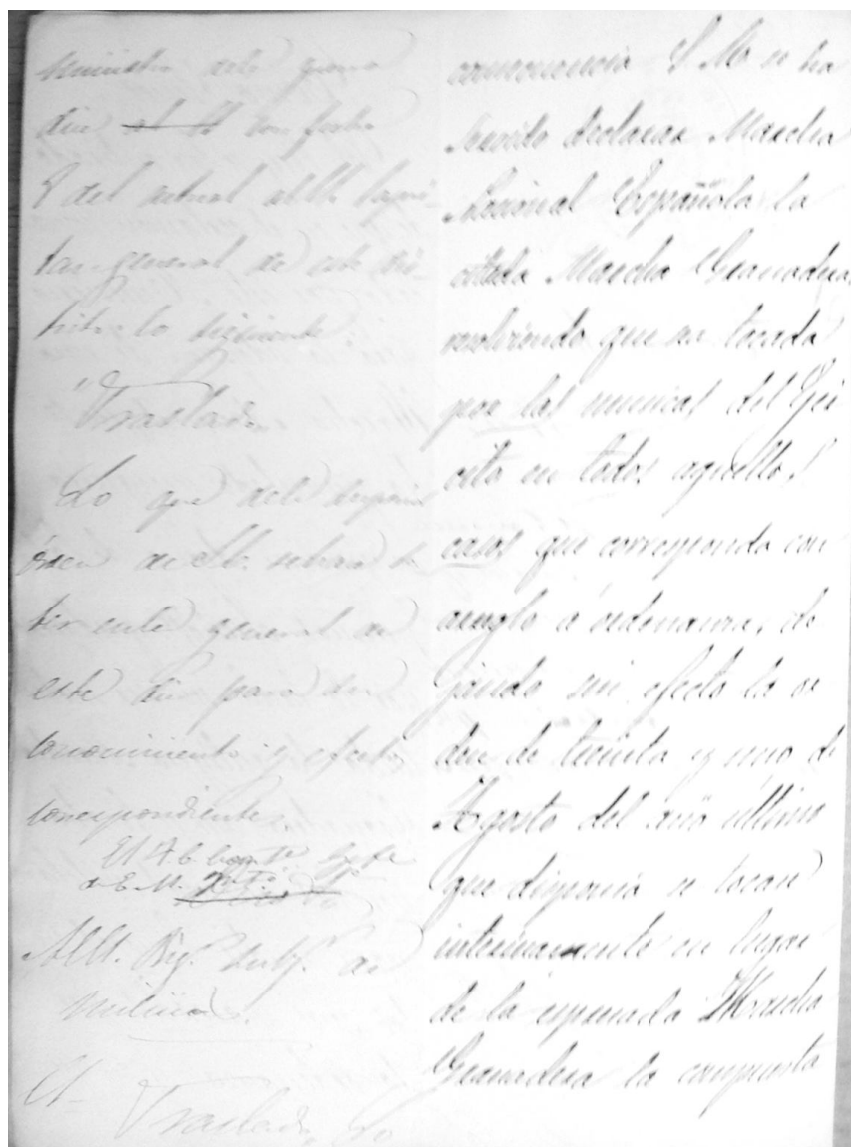 Ministro de la guerra
dice al E. con fecha
9 del actual al E. Capi-
tan general de este dis-
trito lo siguiente.
"Traslado.
Lo que de la
órden de S.E.
general en
este dia para su
conocimiento y efectos
correspondientes.
El T. C. Comte. Jefe
de E. M.
milicias.
El
Traslado, Lo
consecuencia S. M. se ha
servido declarar Marcha
Nacional Española la
citada Marcha Granadera,
resolviendo que sea tocada
por las musicas del Ejer
cito en todos aquellos
casos que corresponda con
arreglo á ordenanza, de
jando sin efecto la or
den de treinta y uno de
Agosto del año último
que disponia se tocase
interinamente en lugar
de la espresada Marcha
Granadera la compuesta